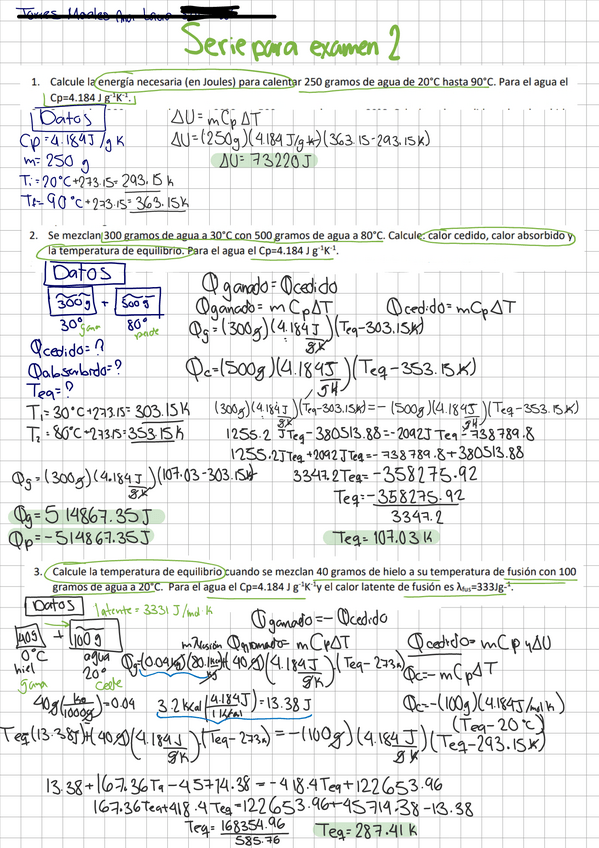 Serie para examen 2
1. Calcule la energía necesaria (en Joules) para calentar 250 gramos de agua de 20°C hasta 90°C. Para el agua el
Cp=4.184 J g⁻¹K⁻¹.
Datos
Cp=4.184J/gK
m=250 g
T₁=20°C+273.15=293.15K
T₂=90°C+273.15=363.15K
ΔU=mCpΔT
ΔU=(250g)(4.184J/gK)(363.15-293.15K)
ΔU=73220J
2. Se mezclan 300 gramos de agua a 30°C con 500 gramos de agua a 80°C. Calcule: calor cedido, calor absorbido y
la temperatura de equilibrio. Para el agua el Cp=4.184 J g⁻¹K⁻¹.
Datos
300g + 500g
30° gana 80° pierde
Qcedido=?
Qabsorbido=?
Teq=?
T₁=30°C+273.15=303.15K
T₂=80°C+273.15=353.15K
Qganado=Qcedido
Qganado=mCpΔT Qcedido=mCpΔT
Qg=(300g)(4.184J/gK)(Teq-303.15K)
Qc=(500g)(4.184J/gK)(Teq-353.15K)
(300g)(4.184J/gK)(Teq-303.15K)=-(500g)(4.184J/gK)(Teq-353.15K)
1255.2JTeq-380513.88=-2092JTeq-738789.8
1255.2JTeq+2092JTeq=-738789.8+380513.88
3347.2Teq=-358275.92
Teq=-358275.92/3347.2
Teq=107.03K
Qg=(300g)(4.184J/gK)(107.03-303.15K)
Qg=514867.35J
Qp=-514867.35J
3. Calcule la temperatura de equilibrio cuando se mezclan 40 gramos de hielo a su temperatura de fusión con 100
gramos de agua a 20°C. Para el agua el Cp=4.184 J g⁻¹K⁻¹y el calor latente de fusión es λfus=333Jg⁻¹.
Datos latente=3331J/mol·K
40g + 100g
0°C agua
hiel 20°
gana cede
Qganado=-Qcedido
mλfusión Qganado=mCpΔT Qcedido=mCpyΔU
Qg=(0.04kg)(80.1kcal/kg)+(40g)(4.184J/gK)(Teq-273K)
Qc=-mCpΔT
Qc=-(100g)(4.184J/molK)
(Teq-20°C)
40g(kg/1000g)=0.04 3.2kcal(4.184J/1kcal)=13.38J
Teq(13.38J)+(40g)(4.184J/gK)(Teq-273K)=-(100g)(4.184J/gK)(Teq-293.15K)
13.38+167.36Tq-45714.38=-418.4Teq+122653.96
167.36Teq+418.4Teq=122653.96+45714.38-13.38
Teq=168354.96/585.76
Teq=287.41K